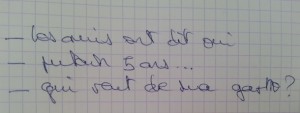 - les amis ont dit oui
- putain 5 ans...
- qui veut de ma ?